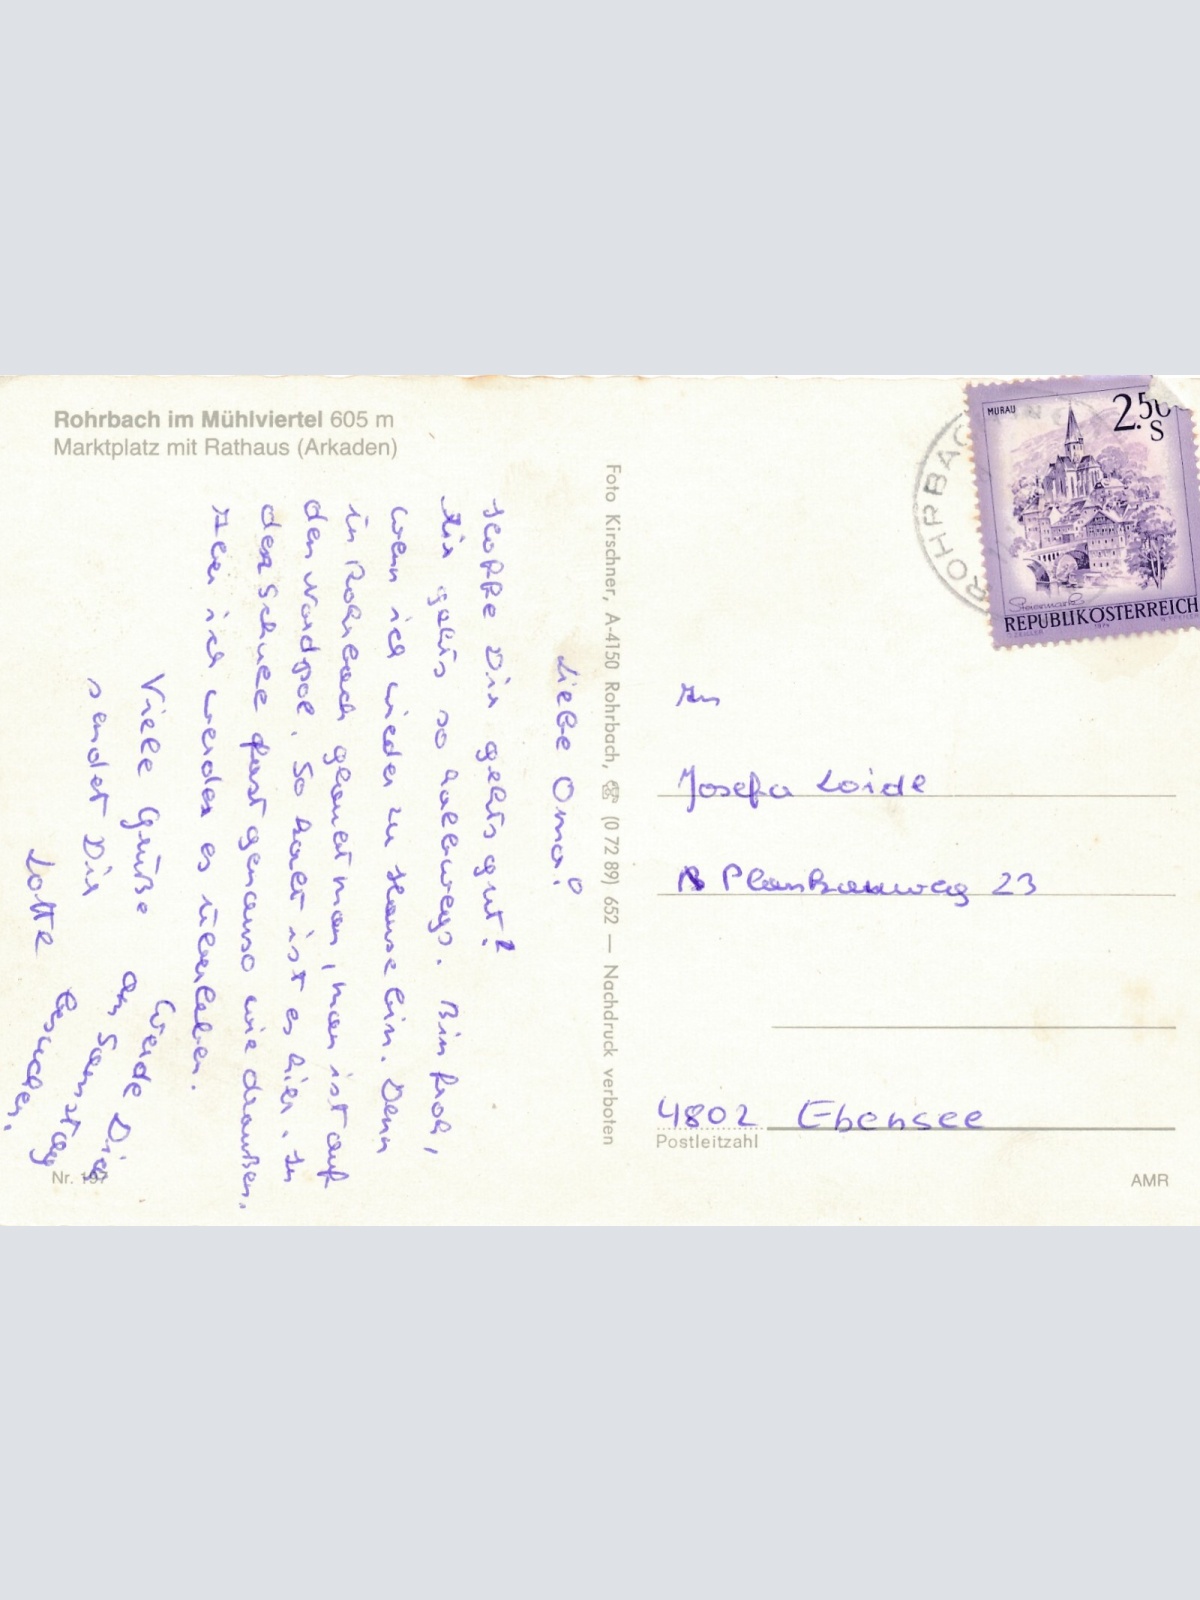 Rohrbach im Mühlviertel 605 m
Marktplatz mit Rathaus (Arkaden)
Liebe Oma!
Hoffe Dir geht's gut?
Mir geht's so halbwegs. Bin froh,
wenn ich wieder zu Hause bin. Denn
in Rohrbach glaubt man, man ist auf
den Nordpol. So kalt ist es hier. In
der Schule fast genauso wie draußen.
Aber ich werde es überleben.
Viele Grüße
sendet Dir
Lotte
Werde Dich
am Samstag
besuchen.
Nr. 197
Foto Kirschner, A-4150 Rohrbach, ☏ (0 72 89) 652 — Nachdruck verboten
ROHRBACH
MURAU
2.50
S
REPUBLIK ÖSTERREICH
An
Josefa Loidl
Plankauweg 23
4802 Ebensee
Postleitzahl
AMR